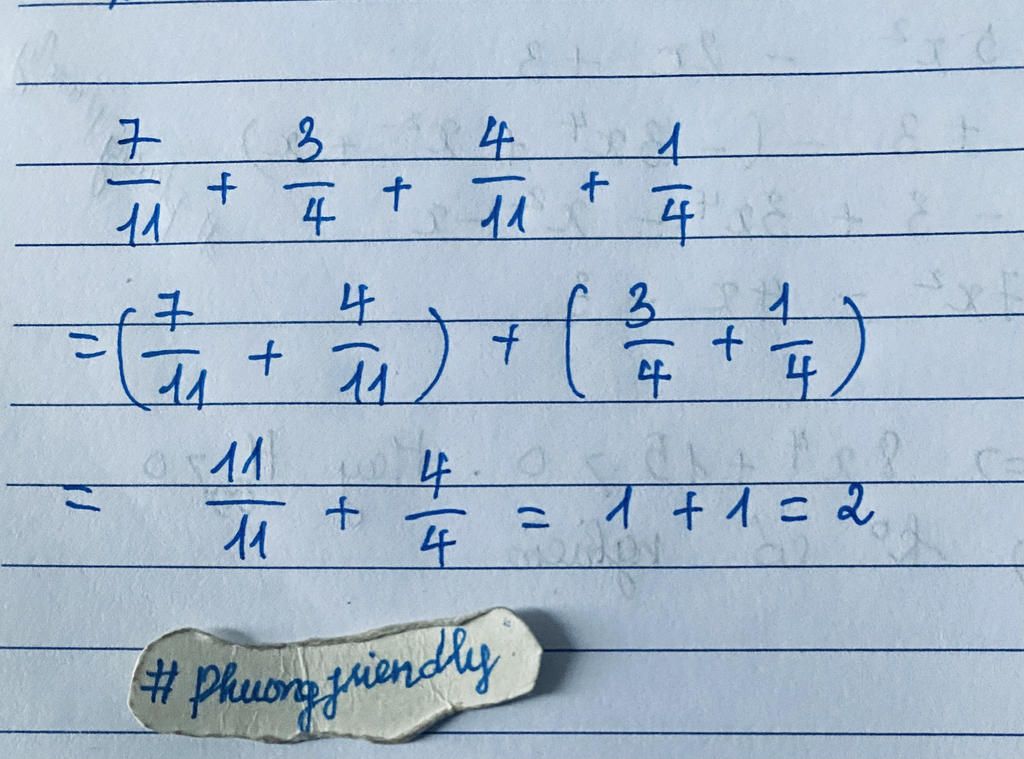 7/11 + 3/4 + 4/11 + 1/4
= (7/11 + 4/11) + (3/4 + 1/4)
= 11/11 + 4/4 = 1 + 1 = 2
# Phuongfriendly